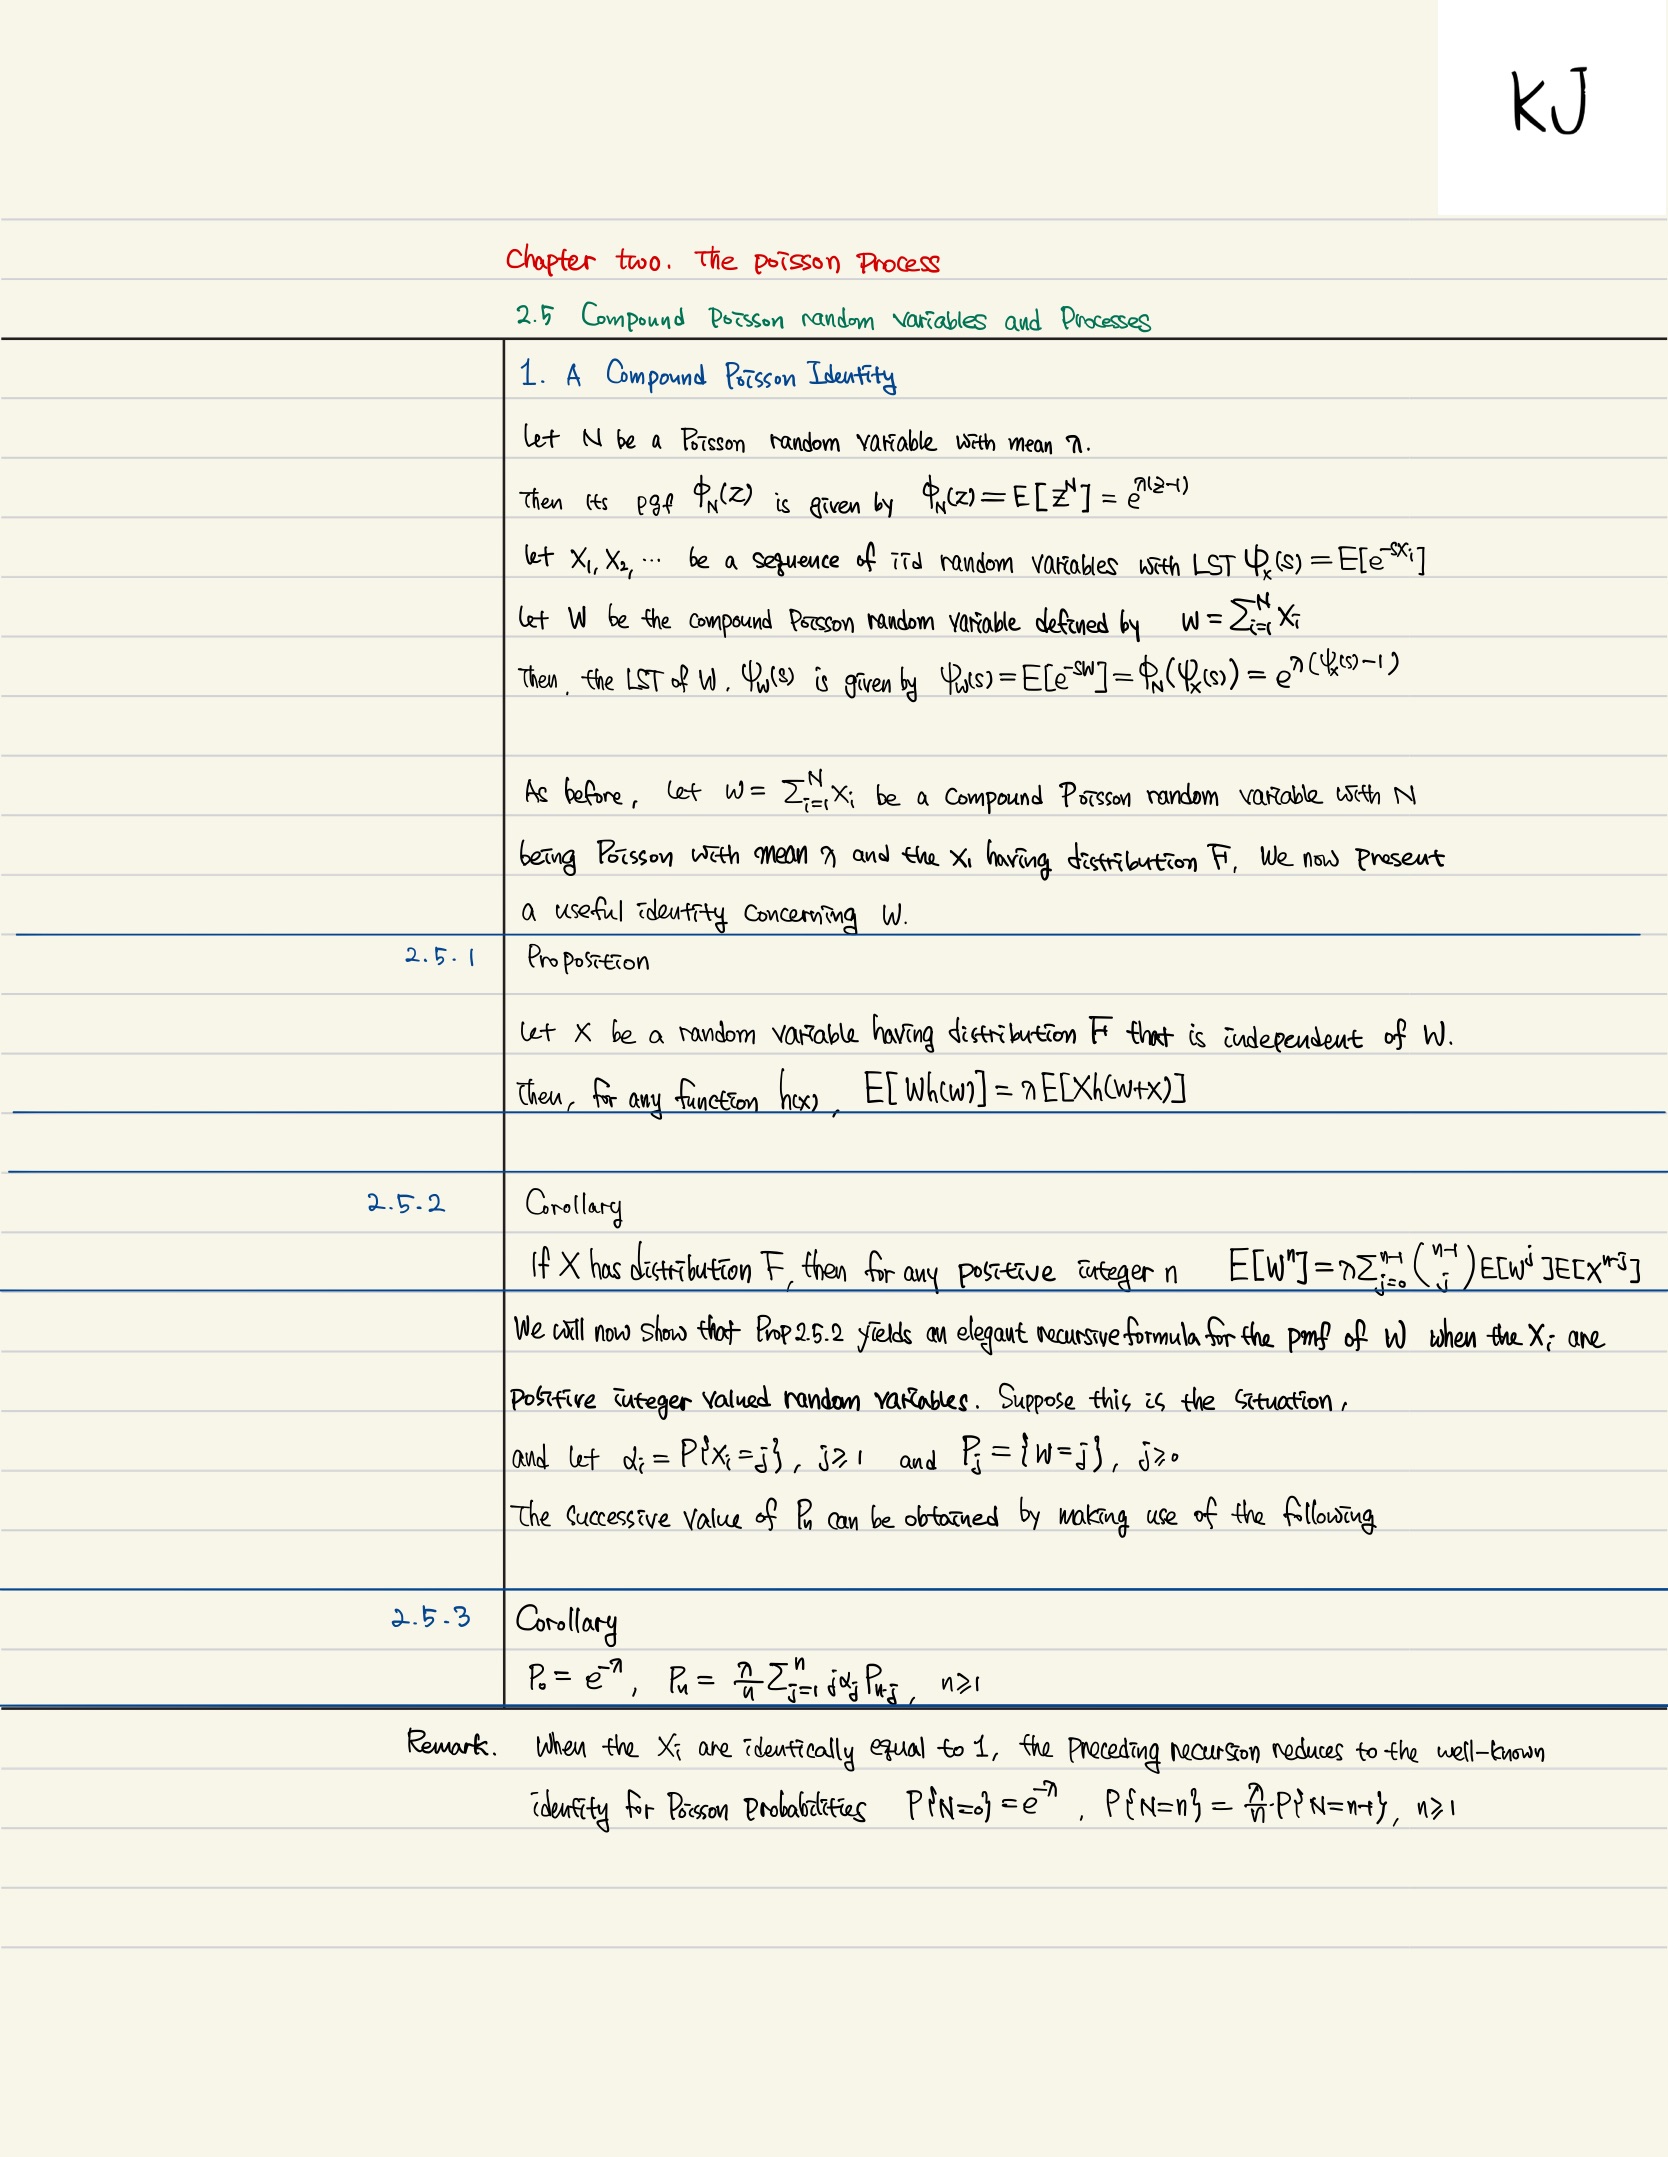 KJ
Chapter two. The poisson Process
2.5 Compound Poisson random variables and Processes
1. A Compound Poisson Identity
Let N be a Poisson random variable with mean λ.
Then its pgf ϕ_N(z) is given by ϕ_N(z) = E[z^N] = e^{λ(z-1)}
Let X₁, X₂, ⋯ be a sequence of iid random variables with LST ψ_x(s) = E[e^{-sX_i}]
Let W be the compound Poisson random variable defined by W = ∑_{i=1}^N X_i
Then, the LST of W, ψ_W(s) is given by ψ_W(s) = E[e^{-sW}] = ϕ_N(ψ_X(s)) = e^{λ(ψ_x(s)-1)}
As before, Let W = ∑_{i=1}^N X_i be a compound Poisson random variable with N
being Poisson with mean λ and the X₁ having distribution F. We now present
a useful identity concerning W.
2.5.1 Proposition
Let X be a random variable having distribution F that is independent of W.
Then, for any function h(x), E[Wh(W)] = λE[Xh(W+X)]
2.5.2 Corollary
If X has distribution F, then for any positive integer n E[W^n] = λ∑_{j=0}^{n-1} (n-1 j) E[W^j]E[X^{n-j}]
We will now show that Prop 2.5.2 yields an elegant recursive formula for the pmf of W when the X_i are
positive integer valued random variables. Suppose this is the situation,
and let α_i = P{X_i = j}, j≥1 and P_j = {W=j}, j≥0
The successive value of P_n can be obtained by making use of the following
2.5.3 Corollary
P₀ = e^{-λ}, P_n = λ/n ∑_{j=1}^n jα_j P_{n-j}, n≥1
Remark. When the X_i are identically equal to 1, the preceding recursion reduces to the well-known
identity for Poisson probabilities P{N=0} = e^{-λ}, P{N=n} = λ/n·P{N=n-1}, n≥1